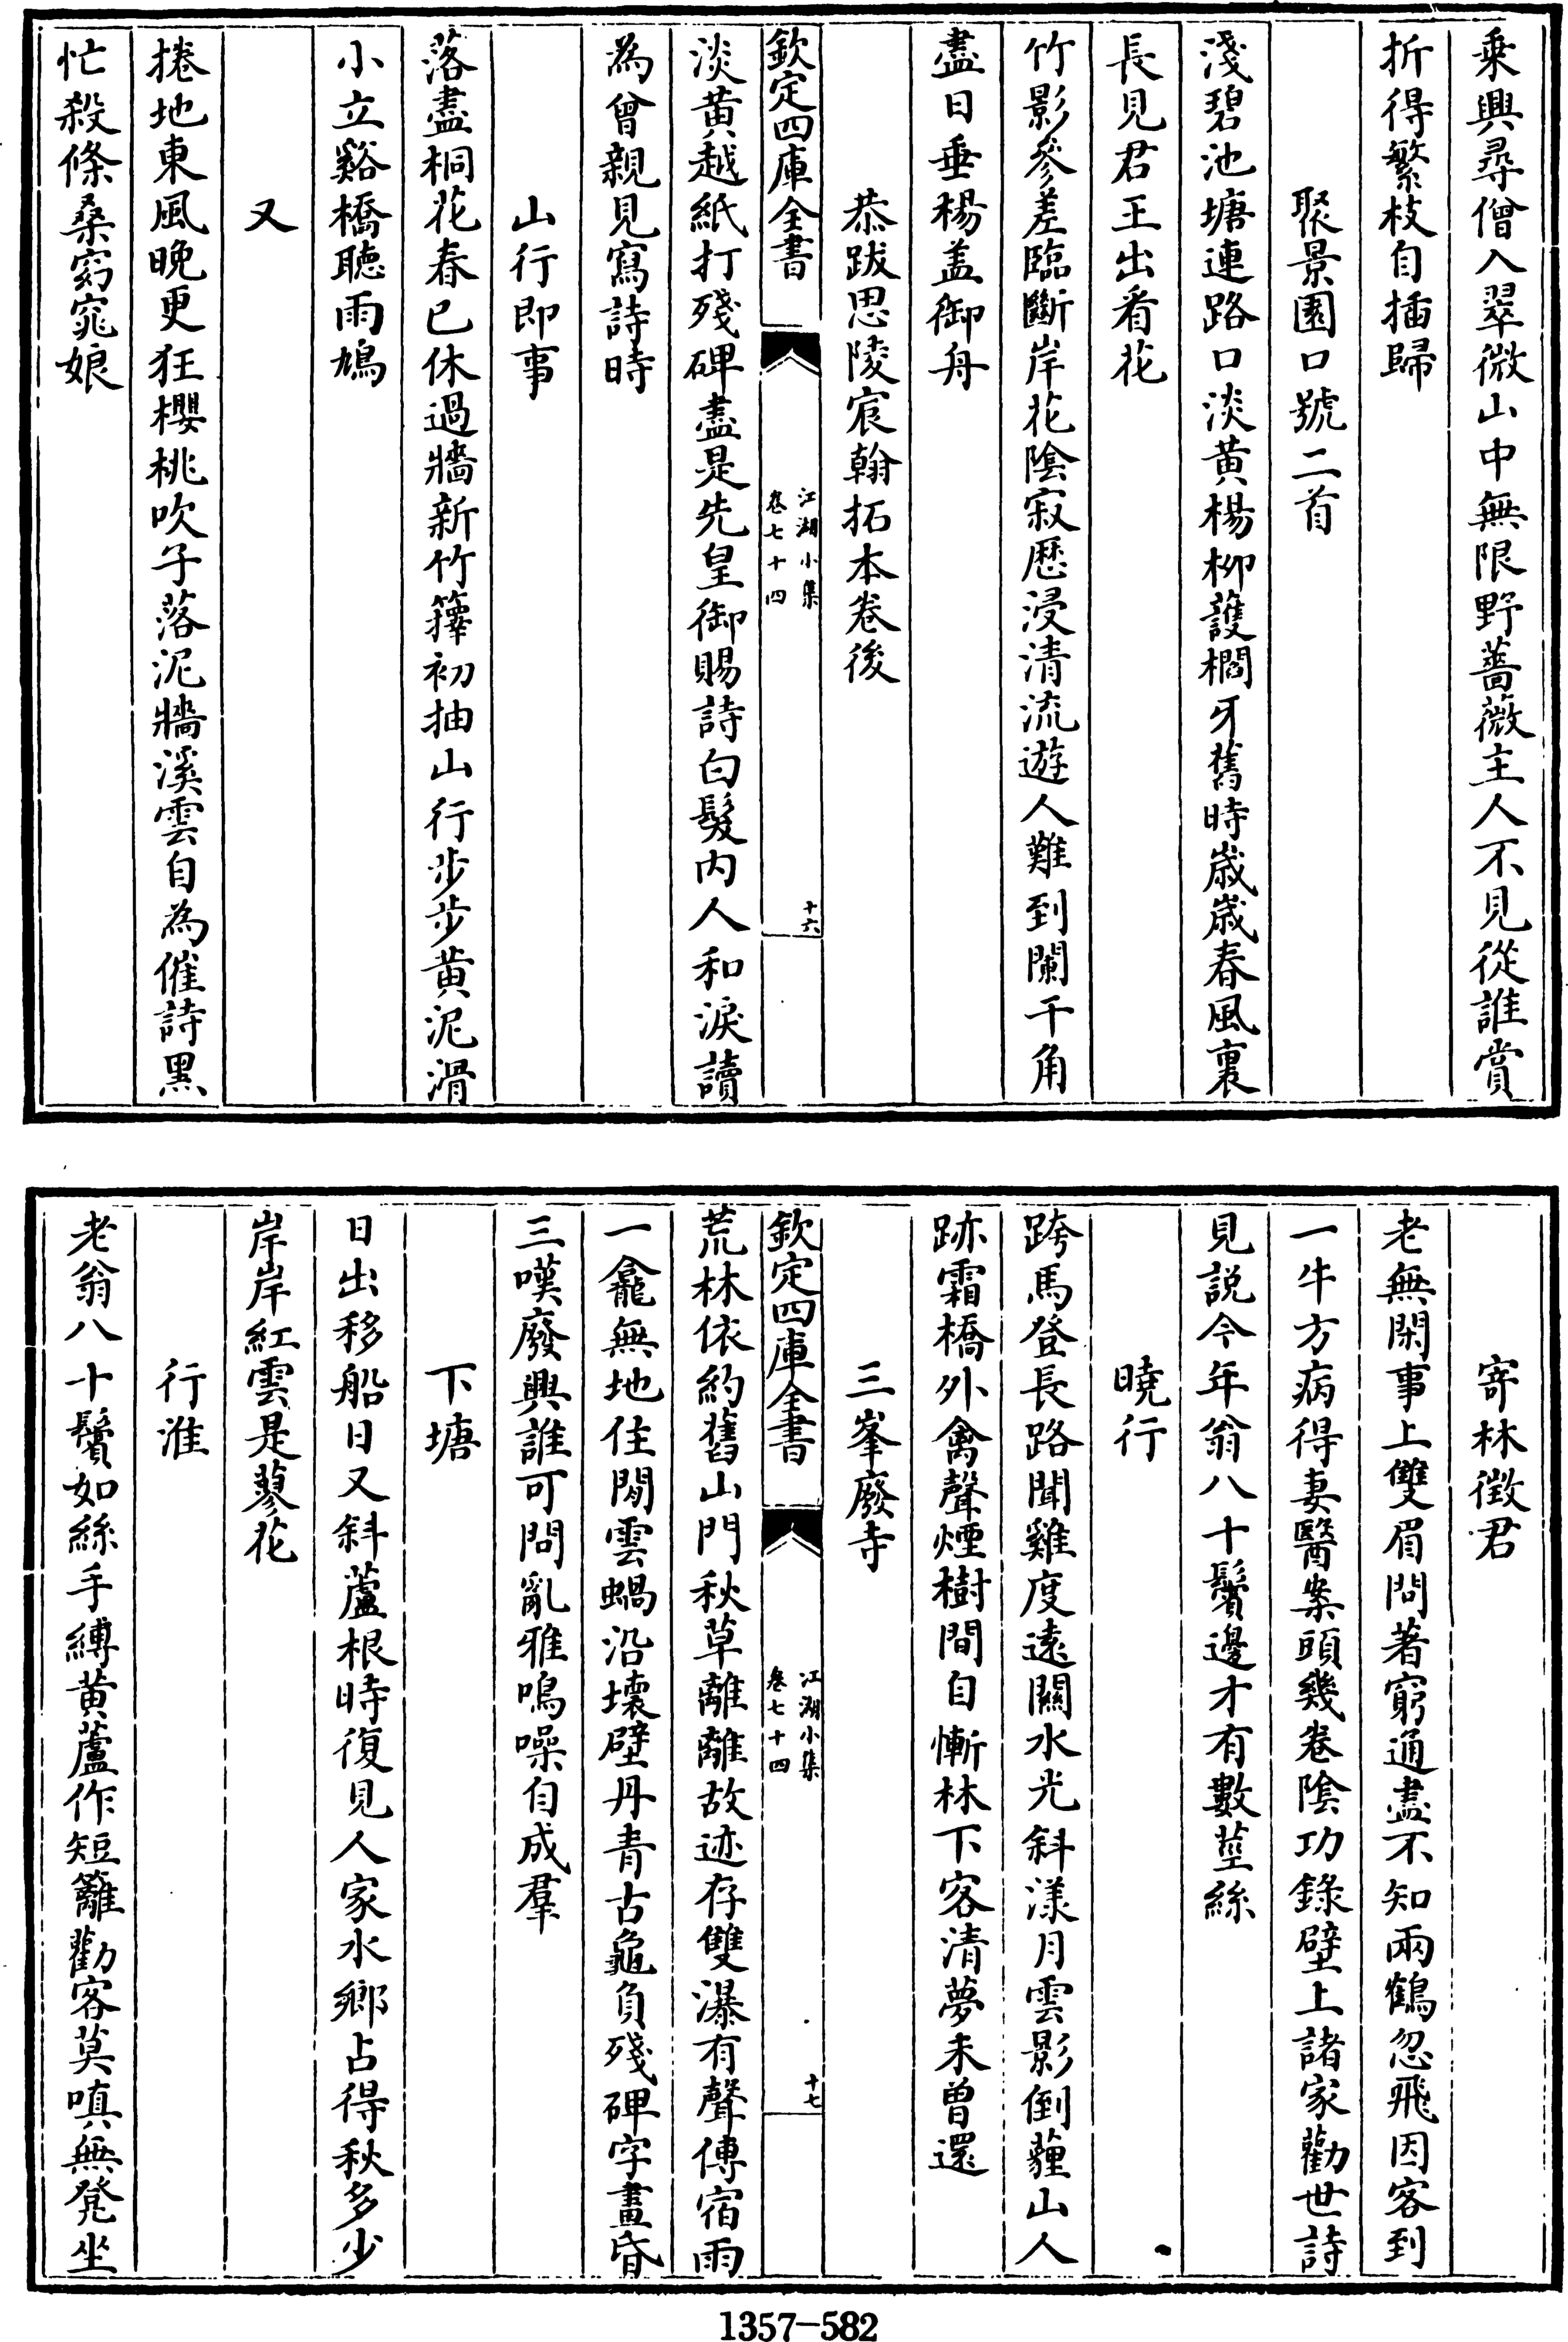 乗興尋僧入翠微山中無限野薔薇主人不見從誰賞
折得繁枝自插歸
聚景園口號二首
淺碧池塘連路口淡黄楊柳護櫩牙舊時歲歲春風裏
長見君王出看花
竹影參差臨斷岸花陰寂歷浸清流遊人難到闌干角
盡日垂楊盖御舟
恭跋思陵宸翰拓本卷後
欽定四庫全書
江湖小集
卷七十四
十六
淡黄越紙打殘碑盡是先皇御賜詩白髮内人和淚讀
為曾親見寫詩時
山行即事
落盡桐花春已休過牆新竹籜初抽山行步步黄泥滑
小立谿橋聽雨鳩
又
捲地東風晚更狂櫻桃吹子落泥牆溪雲自為催詩黒
忙殺條桑窈窕娘
寄林徵君
老無閑事上雙眉問著窮通盡不知兩鶴忽飛因客到
一牛方病得妻醫案頭幾卷陰功錄壁上諸家勸世詩
見説今年翁八十鬢邊才有數莖絲
曉行
跨馬登長路聞雞度遠關水光斜漾月雲影倒藏山人
跡霜橋外禽聲煙樹間自慚林下客清夢未曽還
三峯廢寺
欽定四庫全書
江湖小集
卷七十四
十七
荒林依約舊山門秋草離離故迹存雙瀑有聲傳宿雨
一龕無地住閒雲蝸沿壞壁丹青古龜負殘碑字畫昏
三嘆廢興誰可問亂雅鳴噪自成羣
下塘
日出移船日又斜蘆根時復見人家水鄉占得秋多少
岸岸紅雲是蓼花
行淮
老翁八十鬢如絲手縛黄蘆作短籬勸客莫嗔無凳坐
1357-582